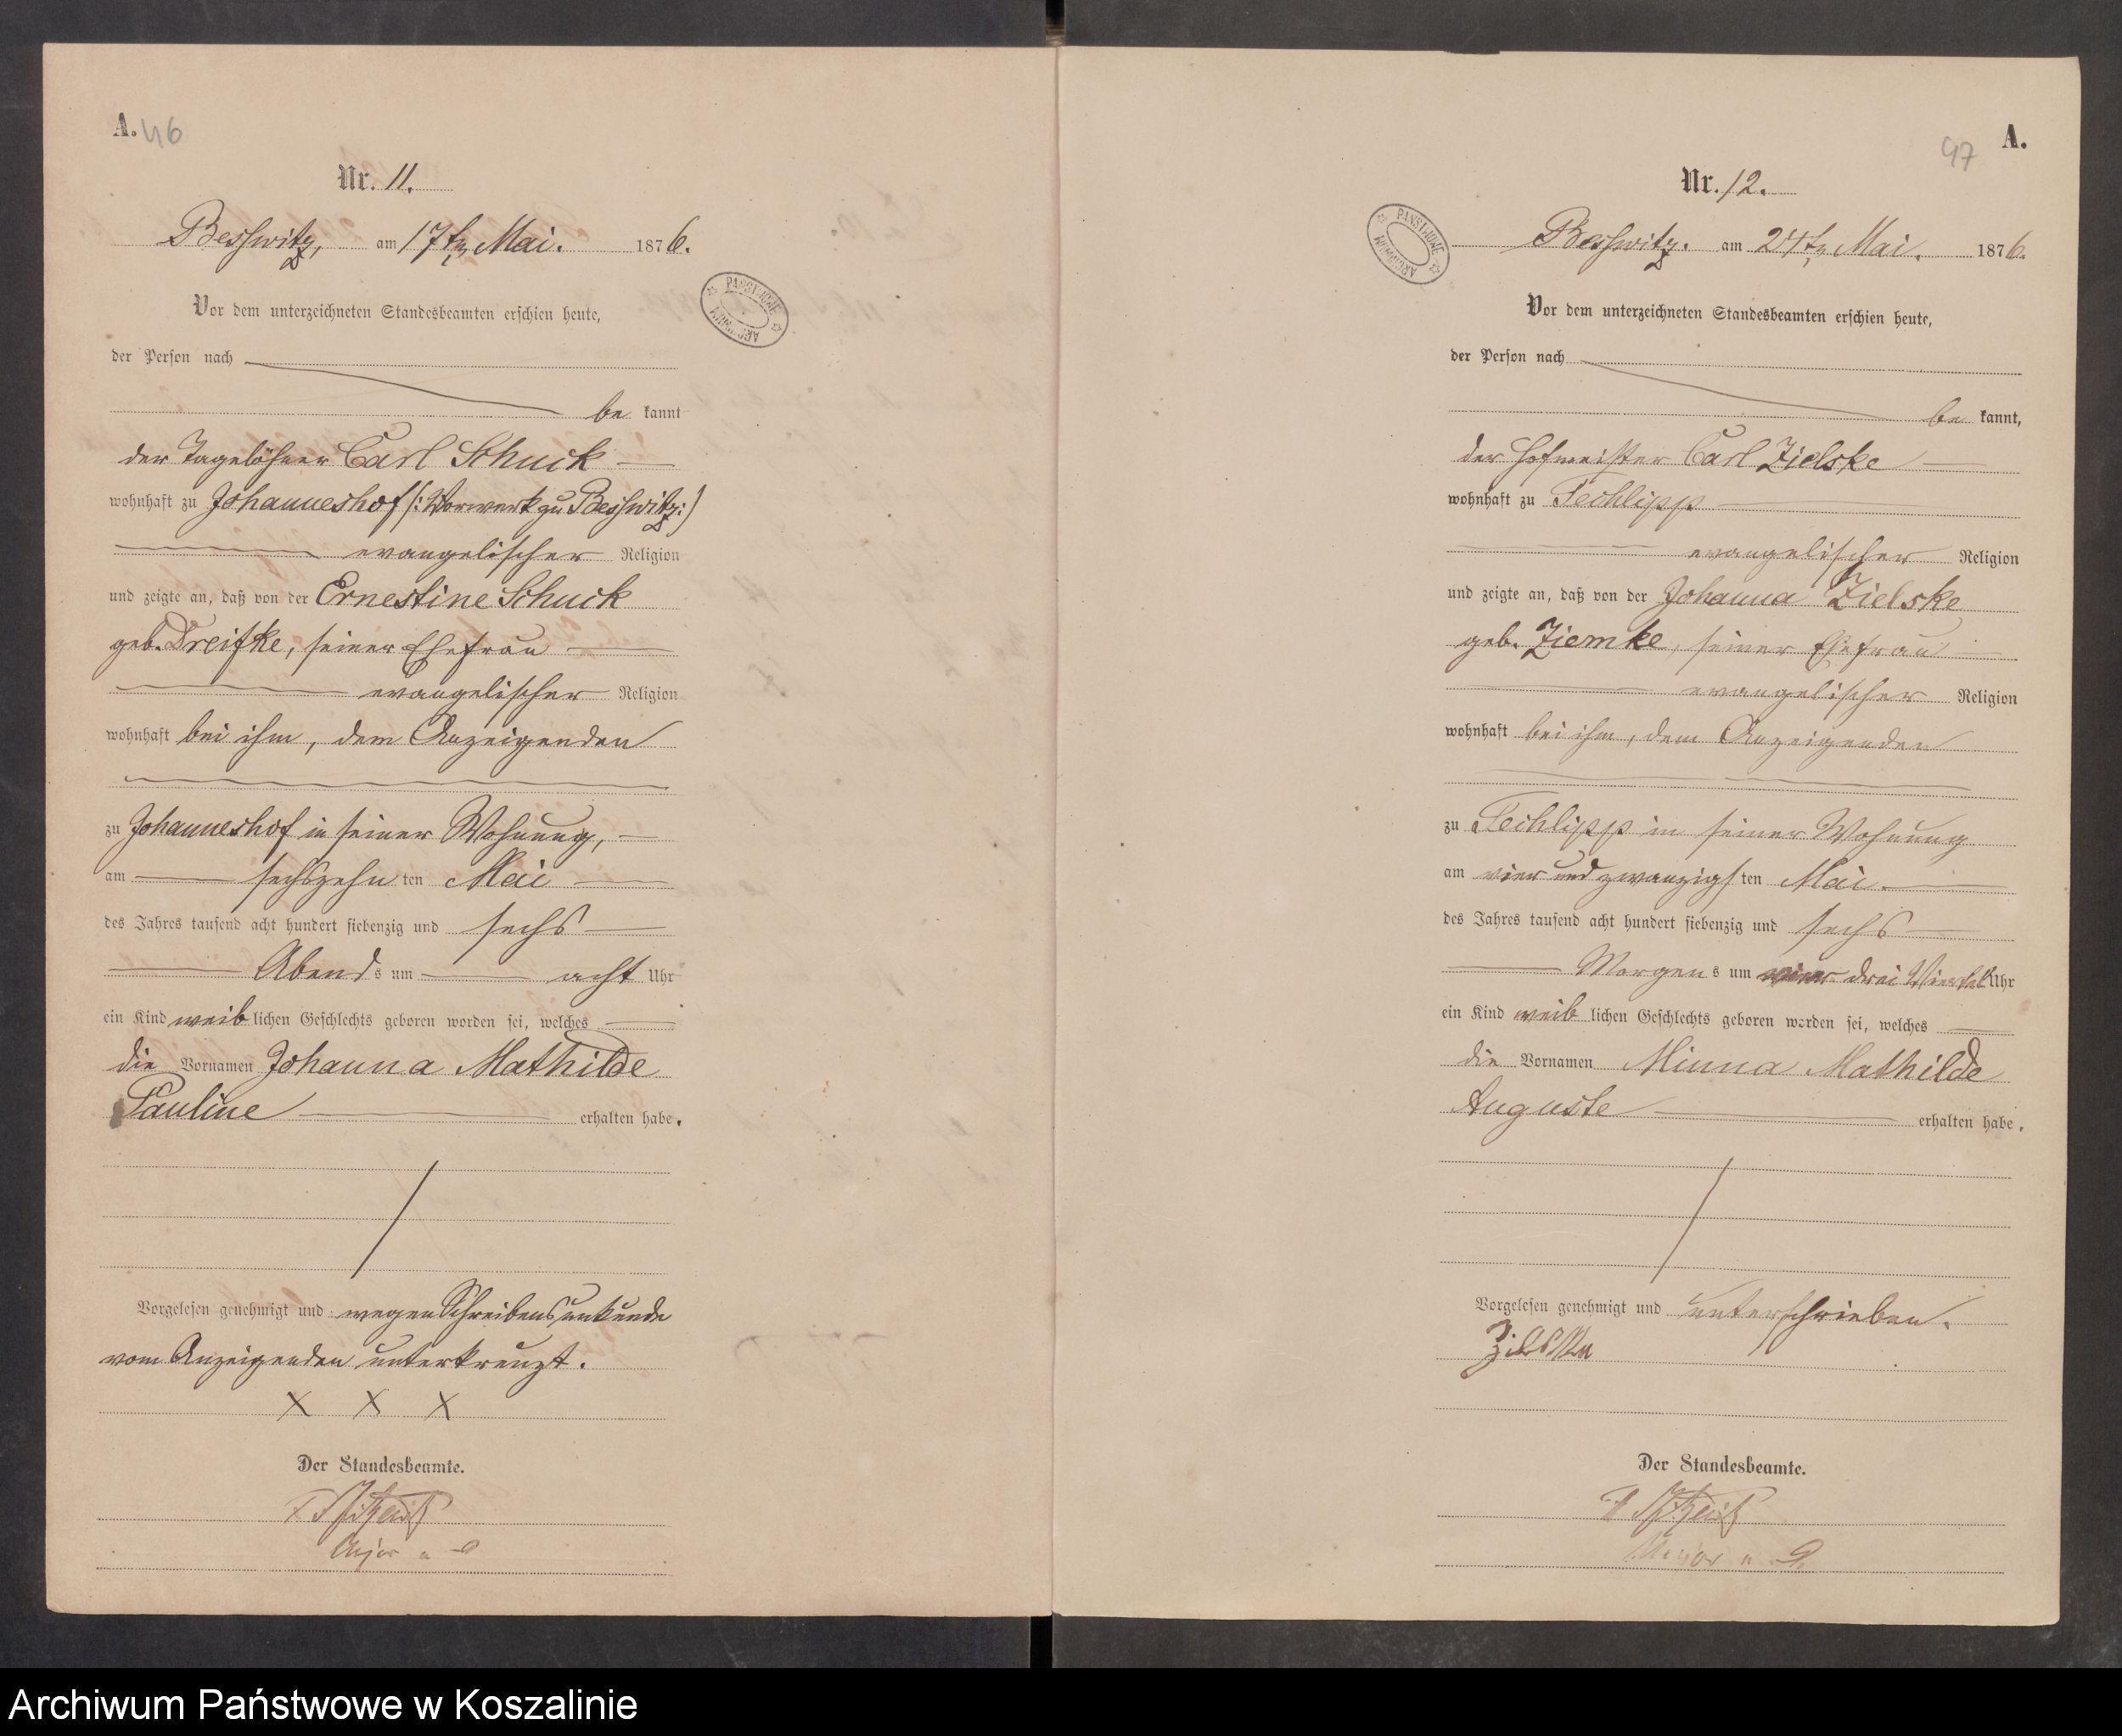 A. 46
Nr. 11.
Beßwitz, am 17ten Mai. 1876.
Vor dem unterzeichneten Standesbeamten erschien heute,
der Person nach
be kannt
der Tagelöhner Carl Schuck
wohnhaft zu Johanneshof (: Vorwerk zu Beßwitz :)
evangelischer Religion
und zeigte an, daß von der Ernestine Schuck
geb. Dreifke, seiner Ehefrau
evangelischer Religion
wohnhaft bei ihm, dem Anzeigenden
zu Johanneshof in seiner Wohnung,
am sechszehn ten Mai
des Jahres tausend acht hundert siebenzig und sechs
Abend s um acht Uhr
ein Kind weib lichen Geschlechts geboren worden sei, welches
die Vornamen Johanna Mathilde
Pauline erhalten habe.
Vorgelesen genehmigt und wegen Schreibensunkunde
vom Anzeigenden unterkreuzt.
X X X
Der Standesbeamte.
Major a D
PANSTWOWE ARCHIWUM
47 A.
Nr. 12.
Beßwitz. am 24ten Mai. 1876.
Vor dem unterzeichneten Standesbeamten erschien heute,
der Person nach
be kannt,
der Hofmeister Carl Zielske
wohnhaft zu Techlipp
evangelischer Religion
und zeigte an, daß von der Johanna Zielske
geb. Ziemke, seiner Ehefrau
evangelischer Religion
wohnhaft bei ihm, dem Anzeigenden
zu Techlipp in seiner Wohnung
am vier und zwanzigs ten Mai.
des Jahres tausend acht hundert siebenzig und sechs
Morgen s um drei Viertel Uhr
ein Kind weib lichen Geschlechts geboren worden sei, welches
die Vornamen Minna Mathilde
Auguste erhalten habe.
Vorgelesen genehmigt und unterschrieben.
Der Standesbeamte.
Major a D.
PANSTWOWE ARCHIWUM
Archiwum Państwowe w Koszalinie